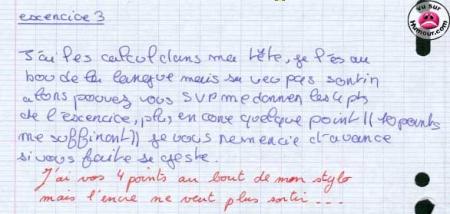 vu sur
Humour.com
excercice 3
J'ai les calcul dans ma tête, je l'és au
bou de la langue mais sa veu pas sortir
alors pouvez vous SVP me donner les 4 pts
de l'excercice, plus encore quelque point (( 10 points
me suffiront)) je vous remercie d'avance
si vous faite se geste.
J'ai vos 4 points au bout de mon stylo
mais l'encre ne veut plus sortir...